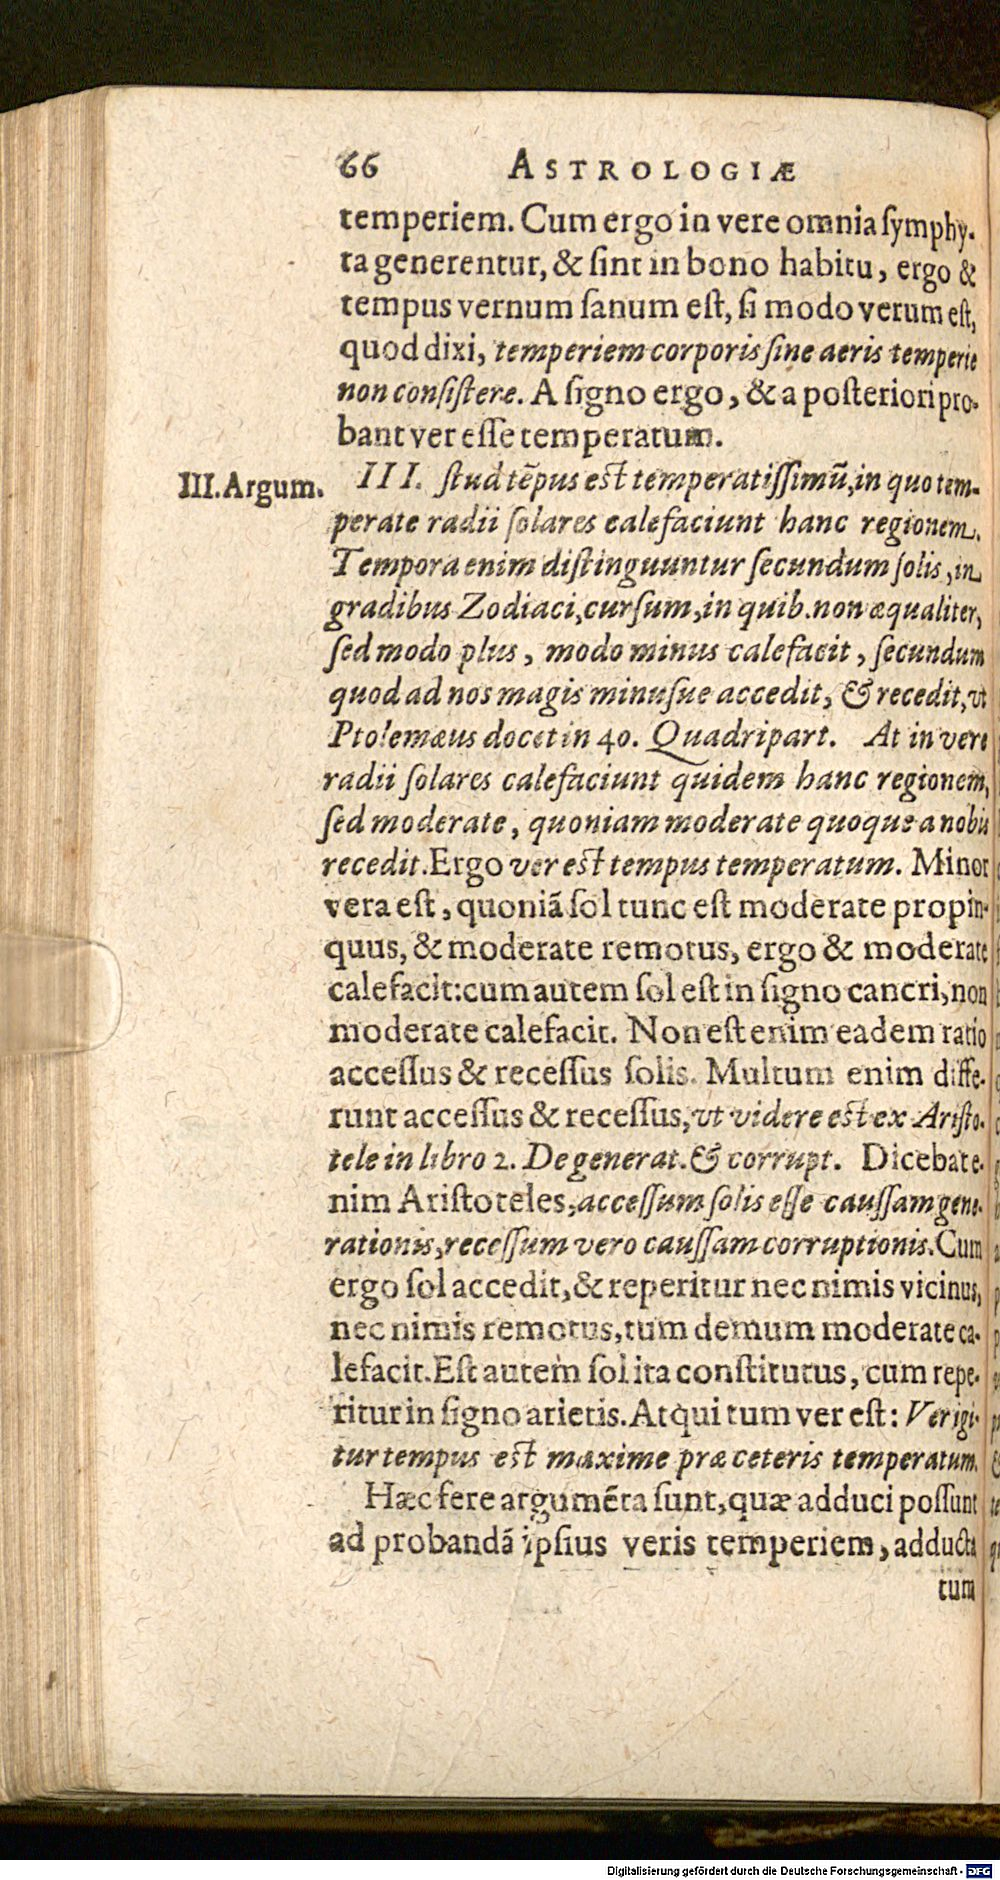 66 ASTROLOGIÆ
temperiem. Cum ergo in vere omnia ſymphy-
ta generentur, & ſint in bono habitu, ergo &
tempus vernum ſanum eſt, ſi modo verum eſt,
quod dixi, temperiem corporis ſine aeris temperie
non conſiſtere. A ſigno ergo, & a poſteriori pro-
bant ver eſſe temperatum.
III. Argum.
III. ſtud tẽpus eſt temperatiſſimũ, in quo tem-
perate radii ſolares calefaciunt hanc regionem.
Tempora enim diſtinguuntur ſecundum ſolis, in
gradibus Zodiaci, curſum, in quib. non æqualiter,
ſed modo plus, modo minus calefacit, ſecundum
quod ad nos magis minuſue accedit, & recedit, vt
Ptolemæus docet in 40. Quadripart. At in vere
radii ſolares calefaciunt quidem hanc regionem,
ſed moderate, quoniam moderate quoque a nobis
recedit. Ergo ver eſt tempus temperatum. Minor
vera eſt, quoniã ſol tunc eſt moderate propin-
quus, & moderate remotus, ergo & moderate
calefacit: cum autem ſol eſt in ſigno cancri, non
moderate calefacit. Non eſt enim eadem ratio
acceſſus & receſſus ſolis. Multum enim diffe-
runt acceſſus & receſſus, vt videre eſt ex Ariſto-
tele in libro 2. De generat. & corrupt. Dicebat e-
nim Ariſtoteles, acceſſum ſolis eſſe cauſſam gene-
rationis, receſſum vero cauſſam corruptionis. Cum
ergo ſol accedit, & reperitur nec nimis vicinus,
nec nimis remotus, tum demum moderate ca-
lefacit. Eſt autem ſol ita conſtitutus, cum repe-
ritur in ſigno arietis. Atqui tum ver eſt: Ver igi-
tur tempus eſt maxime præ ceteris temperatum.
Hæc fere argumẽta ſunt, quæ adduci poſſunt
ad probandã ipſius veris temperiem, adducta
tum
Digitalisierung gefördert durch die Deutsche Forschungsgemeinschaft - DFG